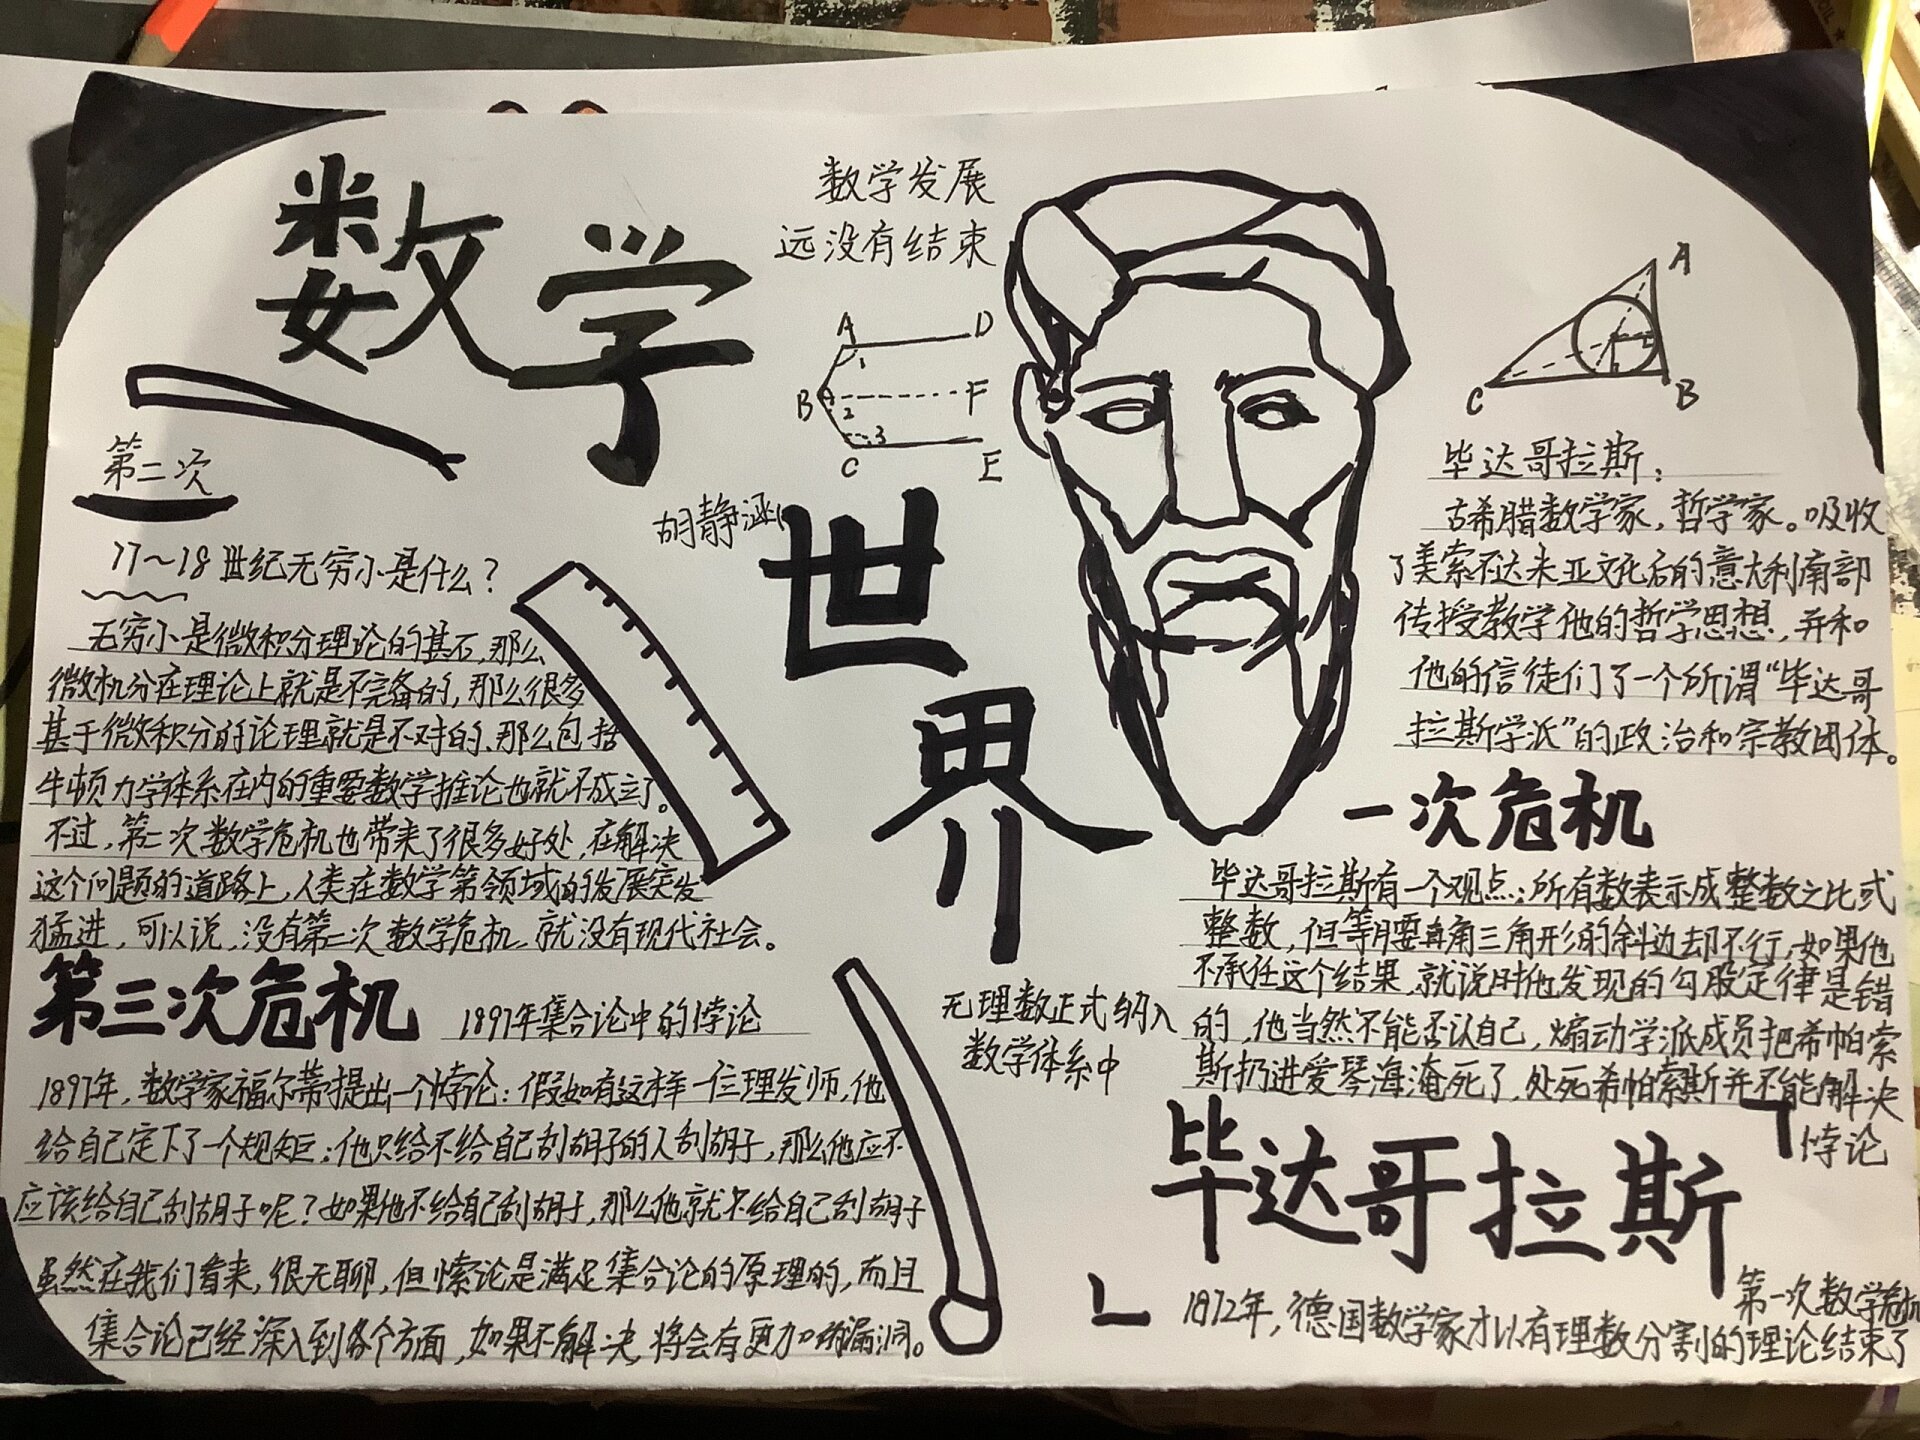 数学
世
界
数学发展
远没有结束
A
D
1
B
2
F
3
C
E
A
C
B
胡静涵
第二次
17～18世纪无穷小是什么?
无穷小是微积分理论的基石,那么
微积分在理论上就是不完备的,那么很多
基于微积分的论理就是不对的、那么包括
牛顿力学体系在内的重要数学推论也就不成立了。
不过,第二次数学危机也带来了很多好处,在解决
这个问题的道路上,人类在数学第领域的发展突发
猛进,可以说,没有第二次数学危机,就没有现代社会。
第三次危机
1897年集合论中的悖论
1897年,数学家福尔蒂提出一个悖论:假如有这样一位理发师,他
给自己定下了一个规矩:他只给不给自己刮胡子的人刮胡子,那么他应不
应该给自己刮胡子呢?如果他不给自己刮胡子,那么他就不给自己刮胡子
虽然在我们看来,很无聊,但悖论是满足集合论的原理的,而且
集合论已经深入到各个方面,如果不解决,将会有更加的漏洞。
毕达哥拉斯:
古希腊数学家,哲学家。吸收
了美索不达米亚文化后的意大利南部
传授教学他的哲学思想,并和
他的信徒们了一个所谓“毕达哥
拉斯学派”的政治和宗教团体。
一次危机
毕达哥拉斯有一个观点:所有数表示成整数之比或
整数,但等腰直角三角形的斜边却不行,如果他
不承任这个结果,就说明他发现的勾股定律是错
的,他当然不能否认自己,煽动学派成员把希帕索
斯扔进爱琴海淹死了,处死希帕索斯并不能解决
悖论
无理数正式纳入
数学体系中
毕达哥拉斯
1872年,德国数学家才以有理数分割的理论结束了
第一次数学危机